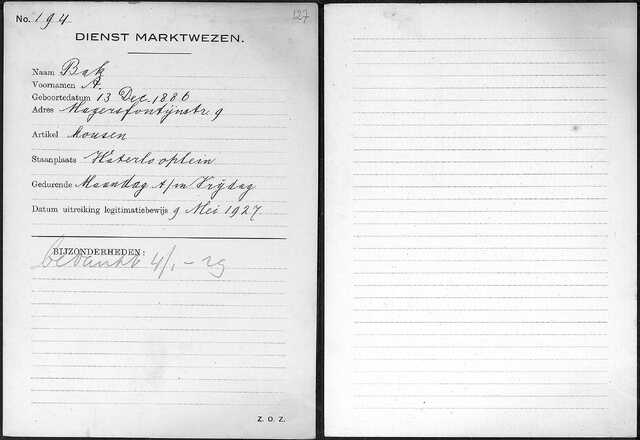 No. 194. 127
DIENST MARKTWEZEN.
Naam Bak
Voornamen A.
Geboortedatum 13 Dec. 1886
Adres Magersfontijnstr. 9
Artikel Mousen
Staanplaats Waterlooplein
Gedurende Maandag t/m Vrijdag
Datum uitreiking legitimatiebewijs 9 Mei 1927.
BIJZONDERHEDEN:
bedankt 4/1-29
Z. O. Z.